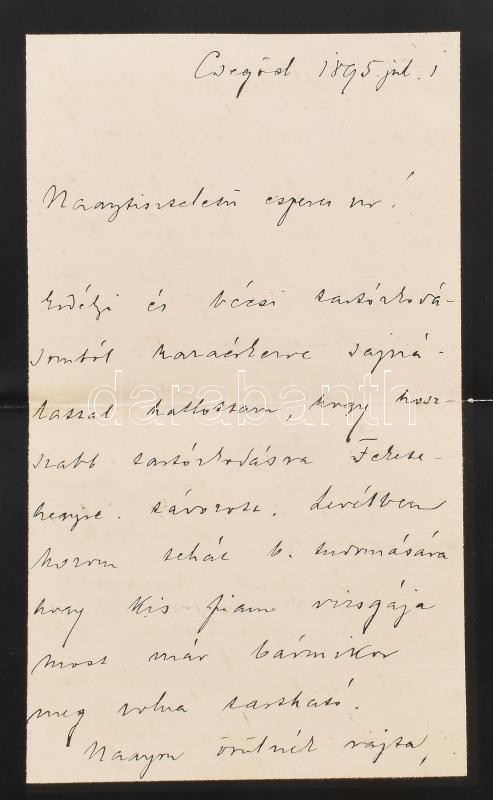 Csegőd 1895 jul. 1
Nagytiszteletü esperes ur!
Erdélyi és bécsi tartózkodá-
somból hazaérkezve sajná-
lattal hallottam, hogy hosz-
szabb tartózkodásra Fekete-
hegyre távozott. Levélben
hozom tehát b. tudomására
hogy kis fiam vizsgája
most már bármikor
meg volna tartható.
Nagyon örülnék rajta,
darabanth